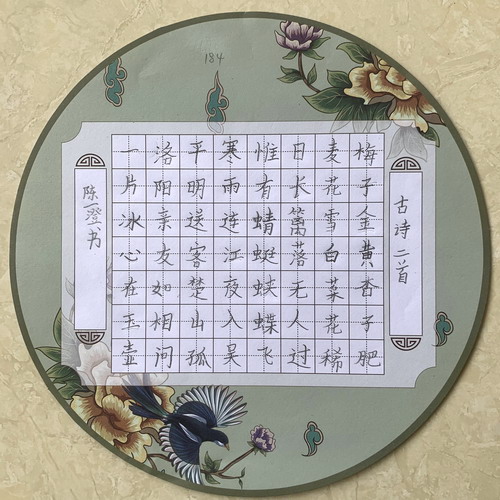 184
古诗二首
梅子金黄杏子肥
麦花雪白菜花稀
日长篱落无人过
惟有蜻蜓蛱蝶飞
寒雨连江夜入吴
平明送客楚山孤
洛阳亲友如相问
一片冰心在玉壶
陈一澄书